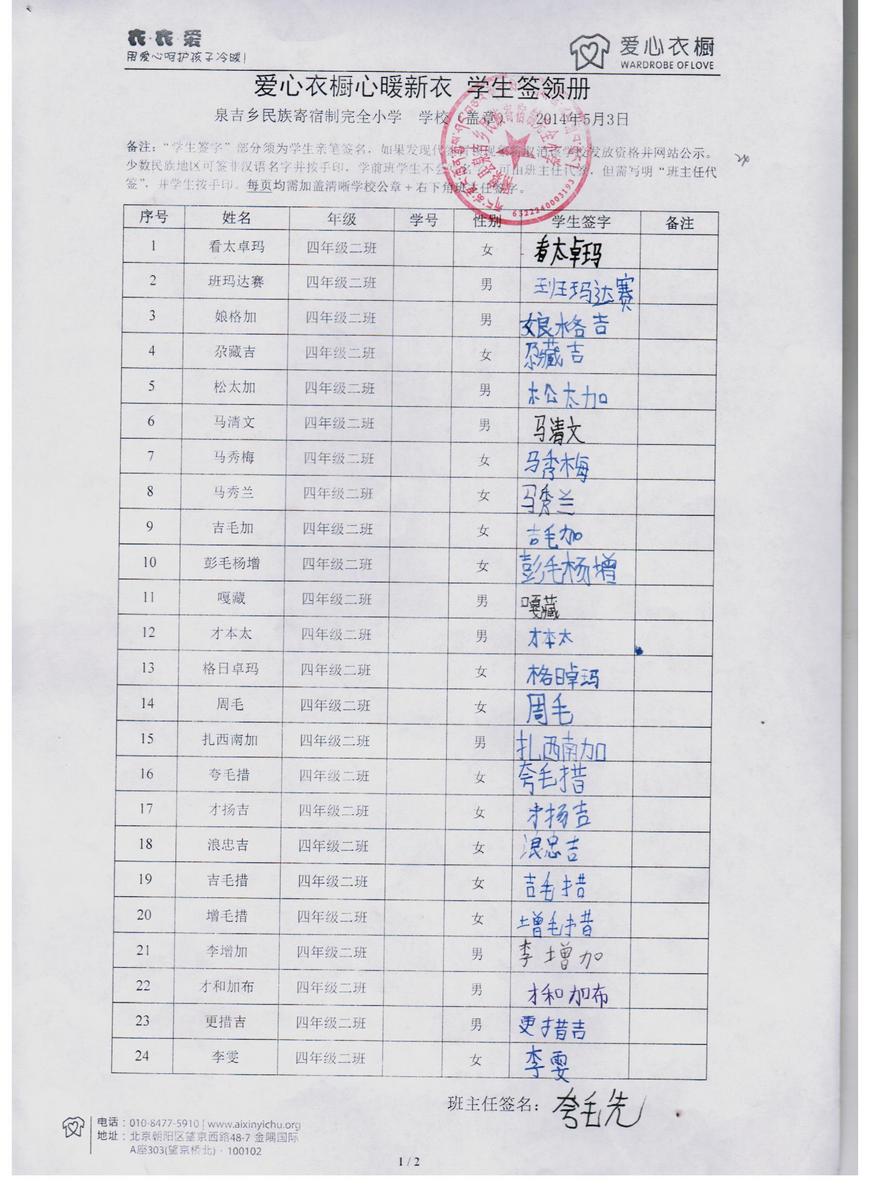 衣·衣·爱
用爱心呵护孩子冷暖!
爱心衣橱
WARDROBE OF LOVE
爱心衣橱心暖新衣 学生签领册
泉吉乡民族寄宿制完全小学 学校（盖章） 2014年5月3日
备注："学生签字"部分须为学生亲笔签名，如果发现代 发放资格并网站公示。
少数民族地区可签非汉语名字并按手印，学前班学生不会 可由班主任代签，但需写明"班主任代
签"，并学生按手印。每页均需加盖清晰学校公章+右下角班主任签字。
6322240003193
序号 姓名 年级 学号 性别 学生签字 备注
1 看太卓玛 四年级二班 女 看太卓玛
2 班玛达赛 四年级二班 男 班玛达赛
3 娘格加 四年级二班 男 娘格吉
4 尕藏吉 四年级二班 女 尕藏吉
5 松太加 四年级二班 男 松太加
6 马清文 四年级二班 男 马清文
7 马秀梅 四年级二班 女 马秀梅
8 马秀兰 四年级二班 女 马秀兰
9 吉毛加 四年级二班 女 吉毛加
10 彭毛杨增 四年级二班 女 彭毛杨增
11 嘎藏 四年级二班 男 嘎藏
12 才本太 四年级二班 男 才本太
13 格日卓玛 四年级二班 女 格日卓玛
14 周毛 四年级二班 女 周毛
15 扎西南加 四年级二班 男 扎西南加
16 夸毛措 四年级二班 女 夸毛措
17 才扬吉 四年级二班 女 才扬吉
18 浪忠吉 四年级二班 女 浪忠吉
19 吉毛措 四年级二班 女 吉毛措
20 增毛措 四年级二班 女 增毛措
21 李增加 四年级二班 男 李增加
22 才和加布 四年级二班 男 才和加布
23 更措吉 四年级二班 男 更措吉
24 李雯 四年级二班 女 李雯
班主任签名：夸毛先
电话：010-8477-5910 | www.aixinyichu.org
地址：北京朝阳区望京西路48-7 金隅国际
A座303(望京桥北)·100102
1 / 2